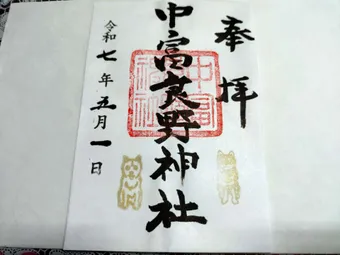 奉拝
中富良野神社
令和七年五月一日